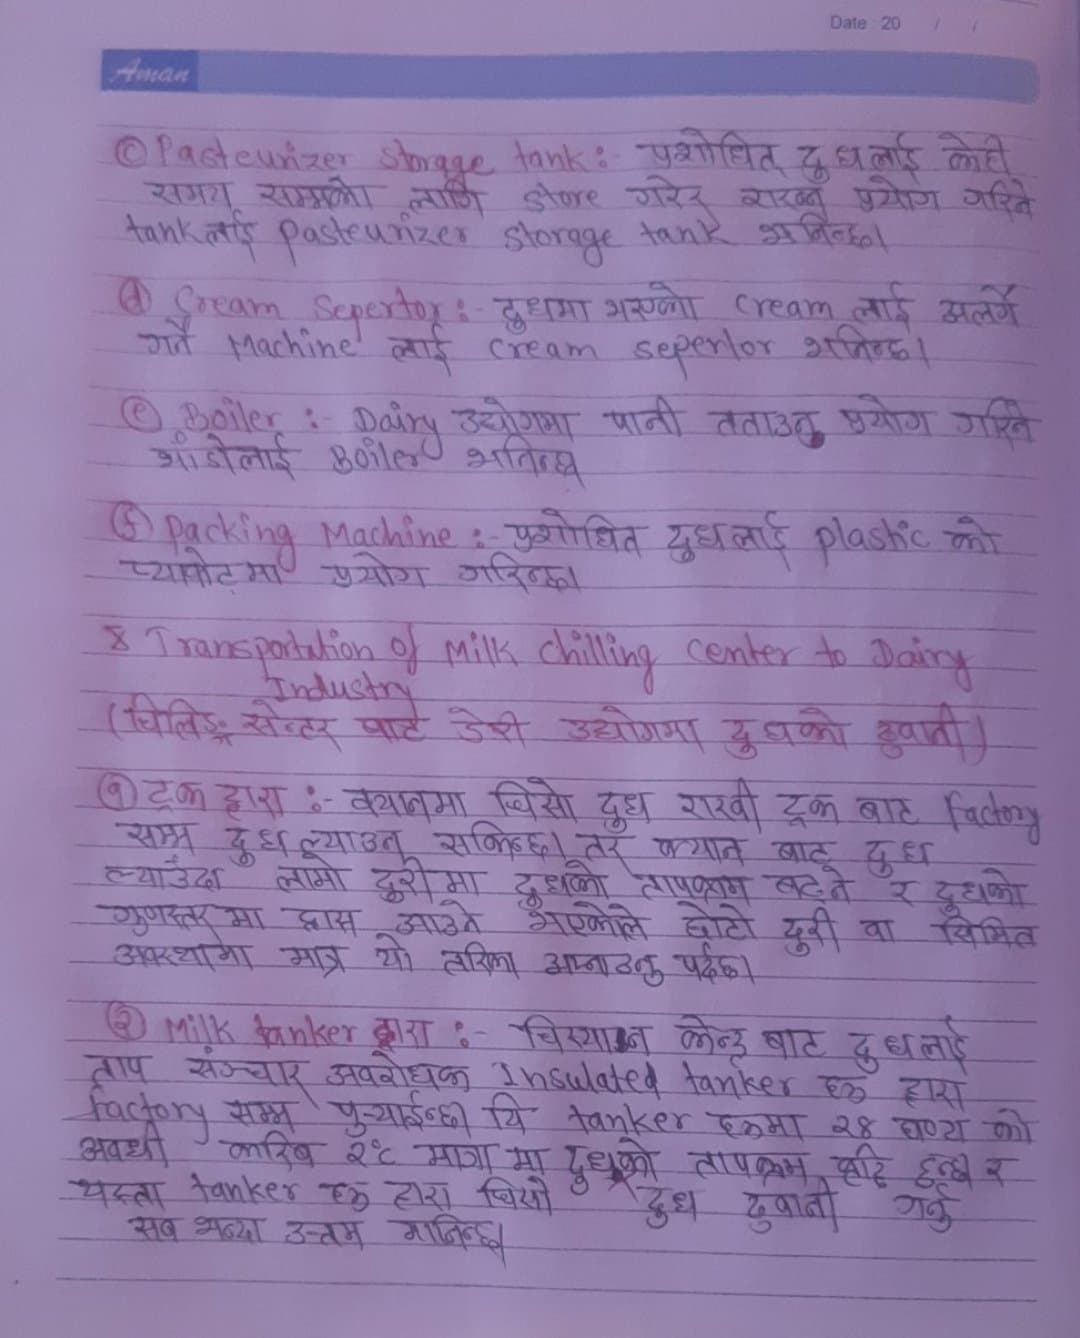 Date 20 / /
Aman
ⓒ Pasteurizer storage tank:- प्रशोधित दुधलाई केही
समय सम्मको लागि store गरेर राख्न प्रयोग गरिने
tank लाई pasteurizer storage tank भनिन्छ।
ⓓ Cream Sepertor:- दुधमा भएको cream लाई अलग
गर्ने Machine लाई cream sepertor भनिन्छ।
ⓔ Boiler :- Dairy उद्योगमा पानी तताउनु प्रयोग गरिने
भाँडोलाई Boiler भनिन्छ
ⓕ Packing Machine :- प्रशोधित दुधलाई plastic को
प्याकेटमा प्रयोग गरिन्छ।
Transportation of Milk chilling center to Dairy
Industry
(चिलिङ्ग सेन्टर बाट डेरी उद्योगमा दुधको ढुवानी)
① ट्रक द्वारा :- क्यानमा चिसो दुध राखी ट्रक बाट factory
सम्म दुध ल्याउनु सकिन्छ। तर क्यान बाट दुध
ल्याउँदा लामो दुरीमा दुधको तापक्रम बढ्ने र दुधको
गुणस्तरमा ह्रास आउने भएकोले छोटो दुरी वा सिमित
अवस्थामा मात्र यो तरिका अप्नाउनु पर्दछ।
② Milk tanker द्वारा :- चिस्यान केन्द्र बाट दुधलाई
ताप संञ्चार अवरोधक Insulated tanker हरु द्वारा
factory सम्म पुर्‍याईन्छ। यि tanker हरुमा २४ घण्टा को
अवधी करिब २°c मात्रामा दुधको तापक्रम वृद्दि हुन्छ र
यस्ता tanker हरु द्वारा चिसो दुध ढुवानी गर्नु
सब भन्दा उत्तम मानिन्छ।